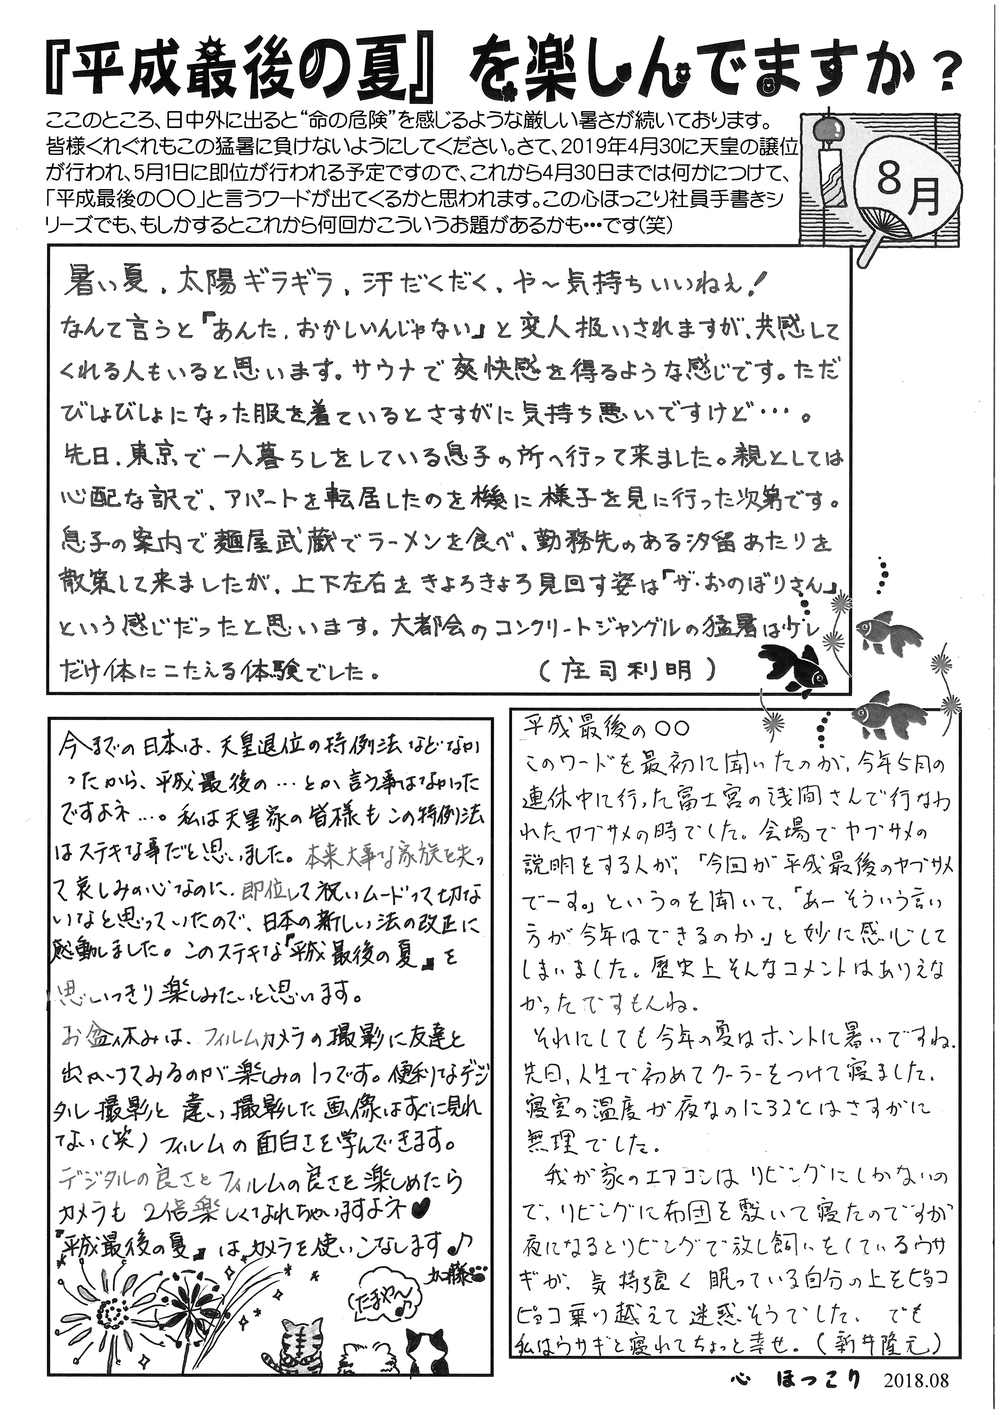 『平成最後の夏』を楽しんでますか？
ここのところ、日中外に出ると“命の危険”を感じるような厳しい暑さが続いております。
皆様くれぐれもこの猛暑に負けないようにしてください。さて、2019年4月30に天皇の譲位
が行われ、5月1日に即位が行われる予定ですので、これから4月30日までは何かにつけて、
「平成最後の〇〇」と言うワードが出てくるかと思われます。この心ほっこり社員手書きシ
リーズでも、もしかするとこれから何回かこういうお題があるかも・・・です(笑)
8月
暑い夏、太陽ギラギラ、汗だくだく、や〜気持ちいいねぇ！
なんて言うと『あんた、おかしいんじゃない』と変人扱いされますが、共感して
くれる人もいると思います。サウナで爽快感を得るような感じです。ただ
びしょびしょになった服を着ているとさすがに気持ち悪いですけど・・・。
先日、東京で一人暮らしをしている息子の所へ行って来ました。親としては
心配な訳で、アパートを転居したのを機に様子を見に行った次第です。
息子の案内で麺屋武蔵でラーメンを食べ、勤務先のある汐留あたりを
散策して来ましたが、上下左右をきょろきょろ見回す姿は『ザ・おのぼりさん』
という感じだったと思います。大都会のコンクリートジャングルの猛暑は少し
だけ体にこたえる体験でした。 (庄司利明)
今までの日本は、天皇退位の特例法などなか
ったから、平成最後の…とか言う事はなかった
ですよネ…。私は天皇家の皆様もこの特例法
はステキな事だと思いました。本来大事な家族を失っ
て哀しみの心なのに、即位して祝いムードって切な
いなと思っていたので、日本の新しい法の改正に
感動しました。このステキな『平成最後の夏』を
思いっきり楽しみたいと思います。
お盆休みは、フィルムカメラの撮影に友達と
出かけてみるのが楽しみの1つです。便利なデジ
タル撮影と違い撮影した画像はすぐに見れ
てない(笑)フィルムの面白さを学んできます。
デジタルの良さとフィルムの良さを楽しめたら
カメラも2倍楽しくなれちゃいますよネ♥
『平成最後の夏』はカメラを使いこなします♪
加藤
たまや〜♪
平成最後の〇〇
このワードを最初に聞いたのが、今年5月の
連休中に行った富士宮の浅間さんで行なわ
れたヤブサメの時でした。会場でヤブサメの
説明をする人が、「今回が平成最後のヤブサメ
でーす。」というのを聞いて、「あーそういう言い
方が今年はできるのか。」と妙に感心して
しまいました。歴史上そんなコメントはありえな
かったですもんね。
それにしても今年の夏はホントに暑いですね。
先日、人生で初めてクーラーをつけて寝ました。
寝室の温度が夜なのに32℃はさすがに
無理でした。
我が家のエアコンはリビングにしかないの
で、リビングに布団を敷いて寝たのですが
夜になるとリビングで放し飼いをしているウサ
ギが、気持良く眠っている自分の上をピョコ
ピョコ乗り越えて迷惑そうでした。でも
私はウサギと寝れてちょっと幸せ。(新井隆元)
心 ほっこり 2018.08